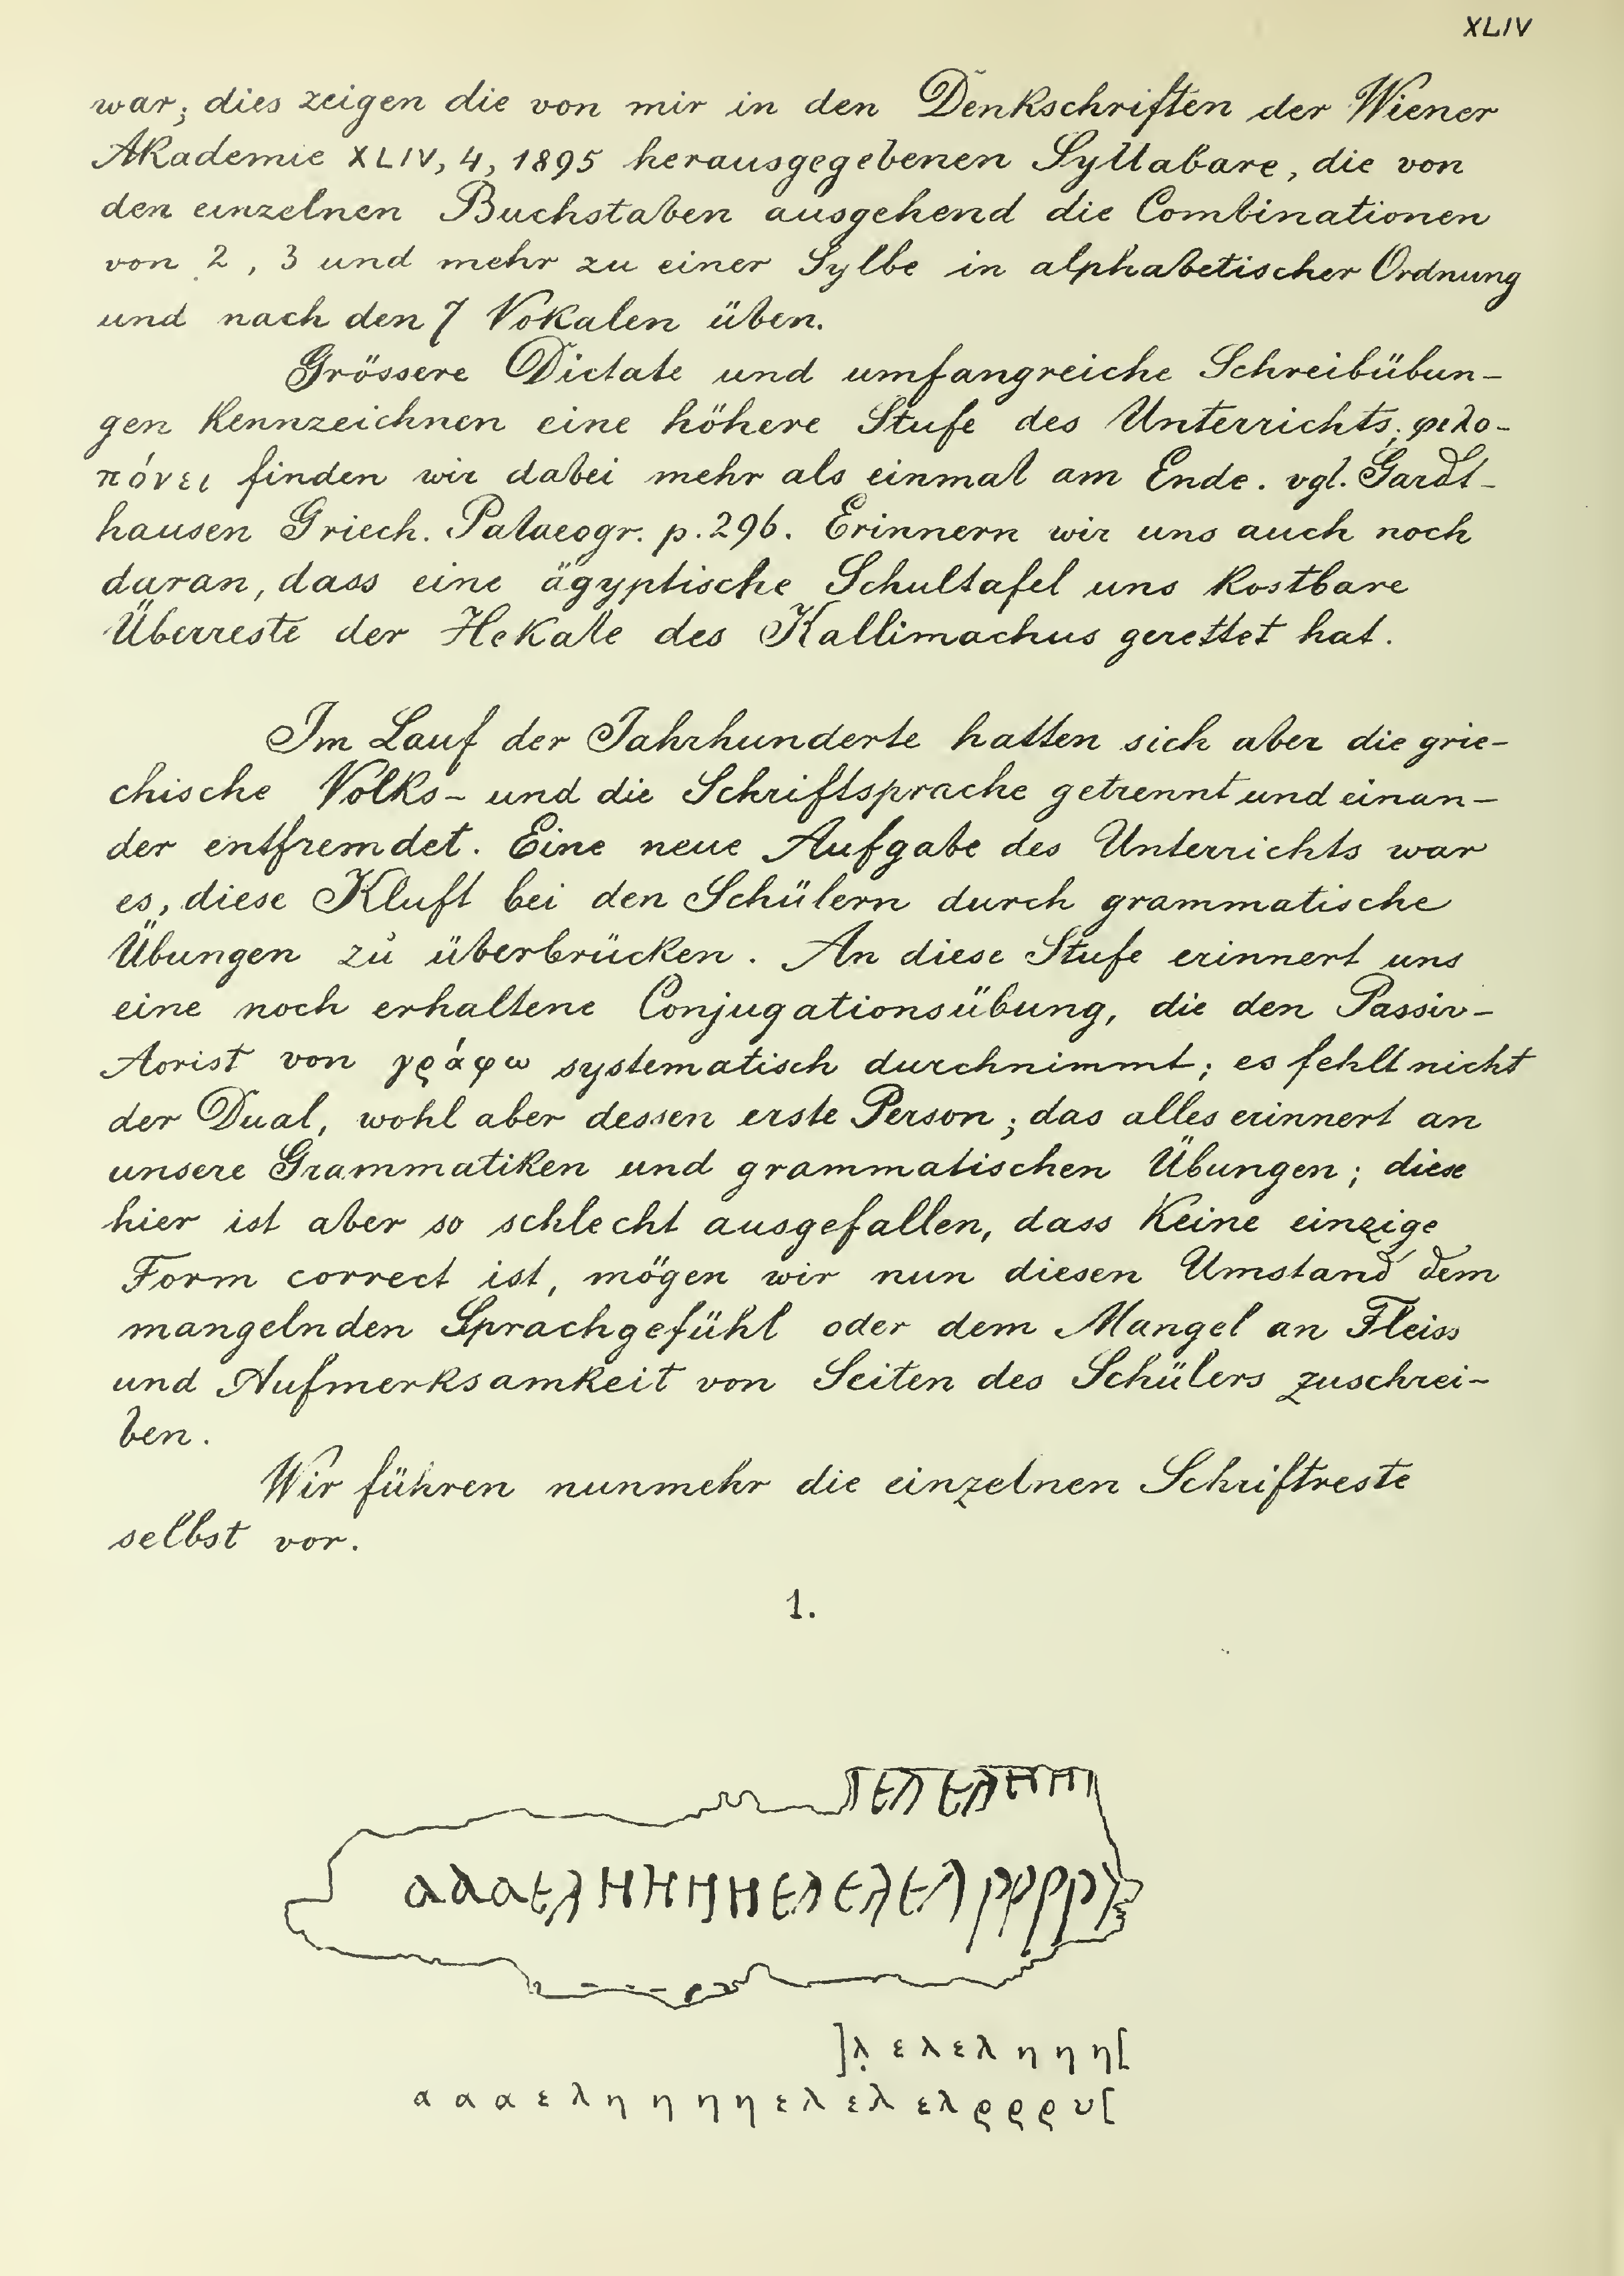 XLIV
war; dies zeigen die von mir in den Denkschriften der Wiener
Akademie XLIV, 4, 1895 herausgegebenen Syllabare, die von
den einzelnen Buchstaben ausgehend die Combinationen
von 2, 3 und mehr zu einer Sylbe in alphabetischer Ordnung
und nach den 7 Vokalen üben.
Grössere Dictate und umfangreiche Schreibübun-
gen kennzeichnen eine höhere Stufe des Unterrichts; φιλο-
πόνει finden wir dabei mehr als einmal am Ende. vgl. Gardt-
hausen Griech. Palaeogr. p. 296. Erinnern wir uns auch noch
daran, dass eine ägyptische Schultafel uns kostbare
Überreste der Hekale des Kallimachus gerettet hat.
Im Lauf der Jahrhunderte hatten sich aber die grie-
chische Volks- und die Schriftsprache getrennt und einan-
der entfremdet. Eine neue Aufgabe des Unterrichts war
es, diese Kluft bei den Schülern durch grammatische
Übungen zu überbrücken. An diese Stufe erinnert uns
eine noch erhaltene Conjugationsübung, die den Passiv-
Aorist von γράφω systematisch durchnimmt; es fehlt nicht
der Dual, wohl aber dessen erste Person; das alles erinnert an
unsere Grammatiken und grammatischen Übungen; diese
hier ist aber so schlecht ausgefallen, dass keine einzige
Form correct ist, mögen wir nun diesen Umstand dem
mangelnden Sprachgefühl oder dem Mangel an Fleiss
und Aufmerksamkeit von Seiten des Schülers zuschrei-
ben.
Wir führen nunmehr die einzelnen Schriftreste
selbst vor.
1.
λ ελ ελ η η η
α α α ε λ η η η η ε λ ε λ ε λ ρ ρ ρ ρ υ
]λ̣ ε λ ε λ η η η[
α α α ε λ η η η η ε λ ε λ ε λ ρ ρ ρ υ[